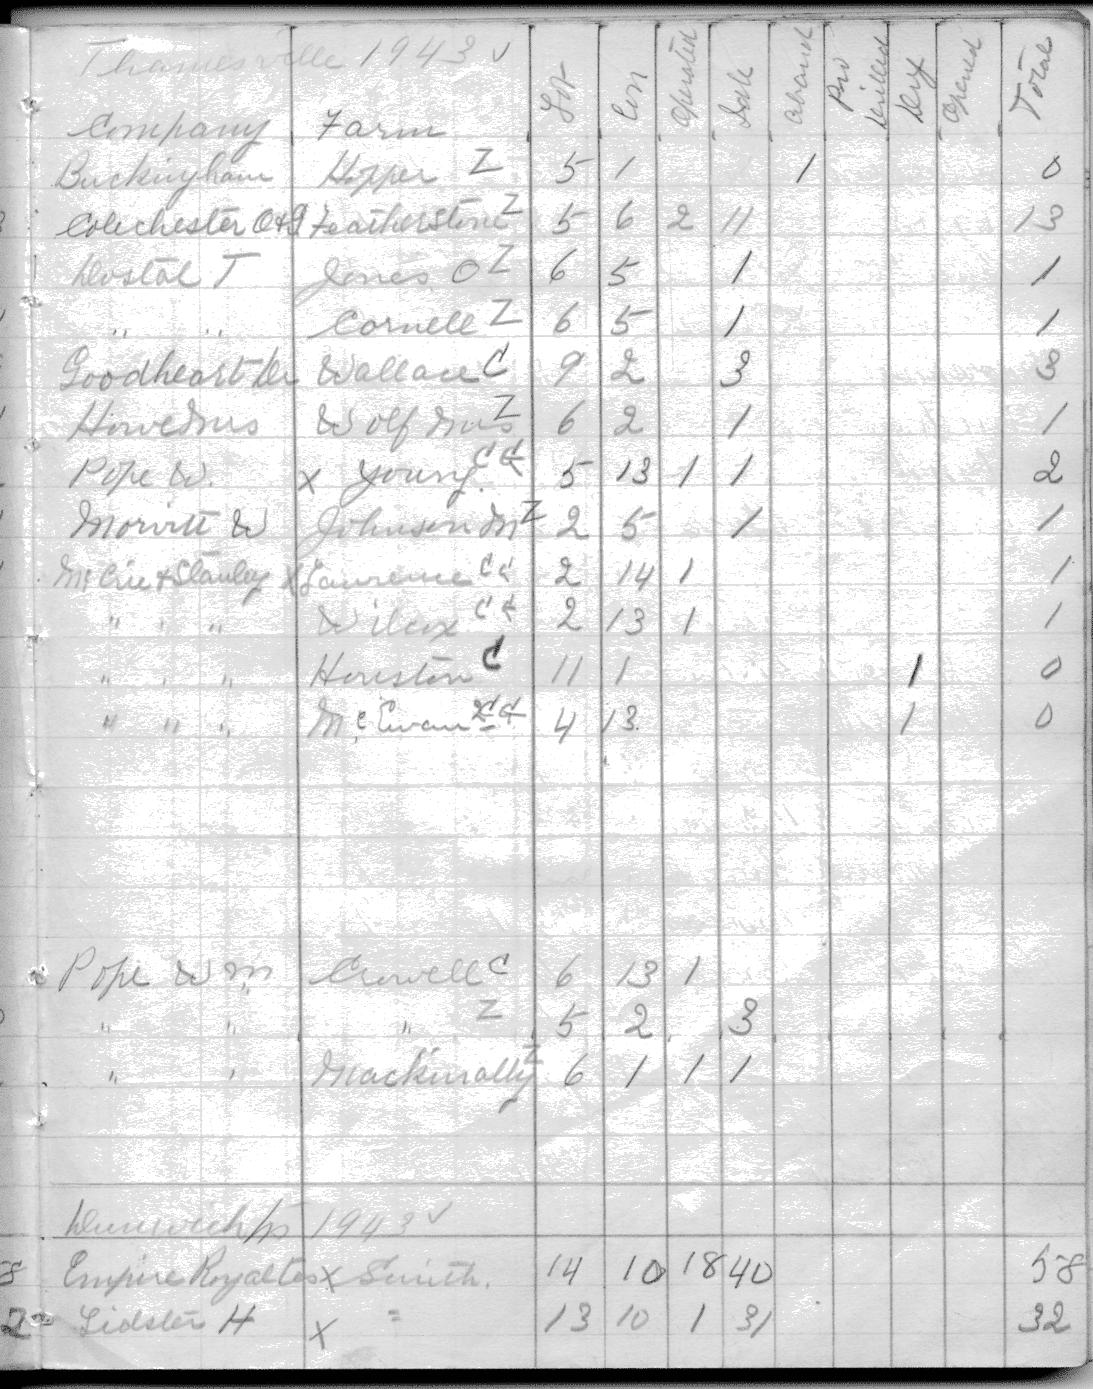 Thamesville 1943 ✓
Company Farm Lot Con Operated Idle Aband Pro Drilled Dry Opened Total
Buckingham Hopper Z 5 1 1 0
Colechester O+G Featherstone Z 5 6 2 11 13
Dostal T Jones O Z 6 5 1 1
" " Cornell Z 6 5 1 1
Goodheart Wallace C 9 2 3 3
Howe Mrs Wolf Mrs Z 6 2 1 1
Pope W. x Young 5 13 1 1 2
W Johnson M Z 2 5 1 1
Stanley x Lawrence 2 14 1 1
" " " Wilcox 2 13 1 1
" " " Houston C 11 1 1 0
" " " McEwan 4 13 1 0
Pope Wm Crowell C 6 13 1
" " " Z 5 2 3
" " Z 6 1 1 1
1943 ✓
8 Empire Royalties x Smith. 14 10 18 40 58
2 Lidster H x " 13 10 1 31 32